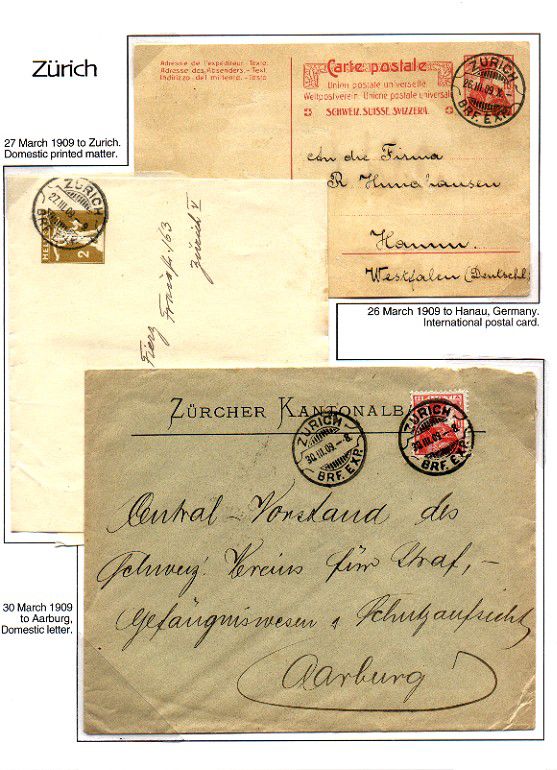 Zürich
Adresse de l'expéditeur - Texte.
Adresse des Absenders. - Text.
Indirizzo del mittente. - Testo
Carte postale
Union postale universelle
Weltpostverein. Unione postale universale
SCHWEIZ. SUISSE. SVIZZERA.
ZÜRICH
26.III.09.
BRF. EXP.
An die Firma
R.
Hamm
Westfalen (Deutschl.
26 March 1909 to Hanau, Germany.
International postal card.
27 March 1909 to Zurich.
Domestic printed matter.
ZÜRICH
27.III.09.-8
BRF. EXP.
HELV
2
Fierz
163
Zürich V
ZÜRCHER KANTONALBA
ZÜRICH
30.III.09.-8.
BRF. EXP.
HELVETIA
ZÜRICH
30.III.09.-8.
BRF. EXP.
Central-Vorstand des
Schweiz. Vereins für Straf,-
Gefängniswesen & Schutzaufsicht
Aarburg
30 March 1909
to Aarburg,
Domestic letter.